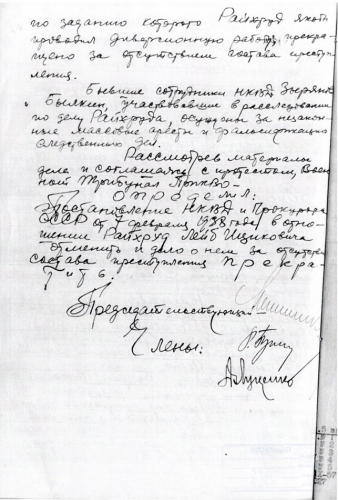 по заданию которого Райхруд якобы
проводил диверсионную работу, прекра-
щено за отсутствием состава преступ-
ления.
Бывшие сотрудники НКВД Зырянов
и Былкин, участвовавшие в расследовании
по делу Райхруда, осуждены за незакон-
ные массовые аресты и фальсификацию
следственных дел.
Рассмотрев материалы
дела и соглашаясь с протестом, Воен-
ный Трибунал ПриКВО –
О п р е д е л и л:
Постановление НКВД и Прокурора
СССР от 7 февраля 1938 года в отно-
шении Райхруд Лейб Ициковича
отменить и дело о нем за отсутствием
состава преступления П р е к р а-
т и т ь.
Председательствующий –
Члены: